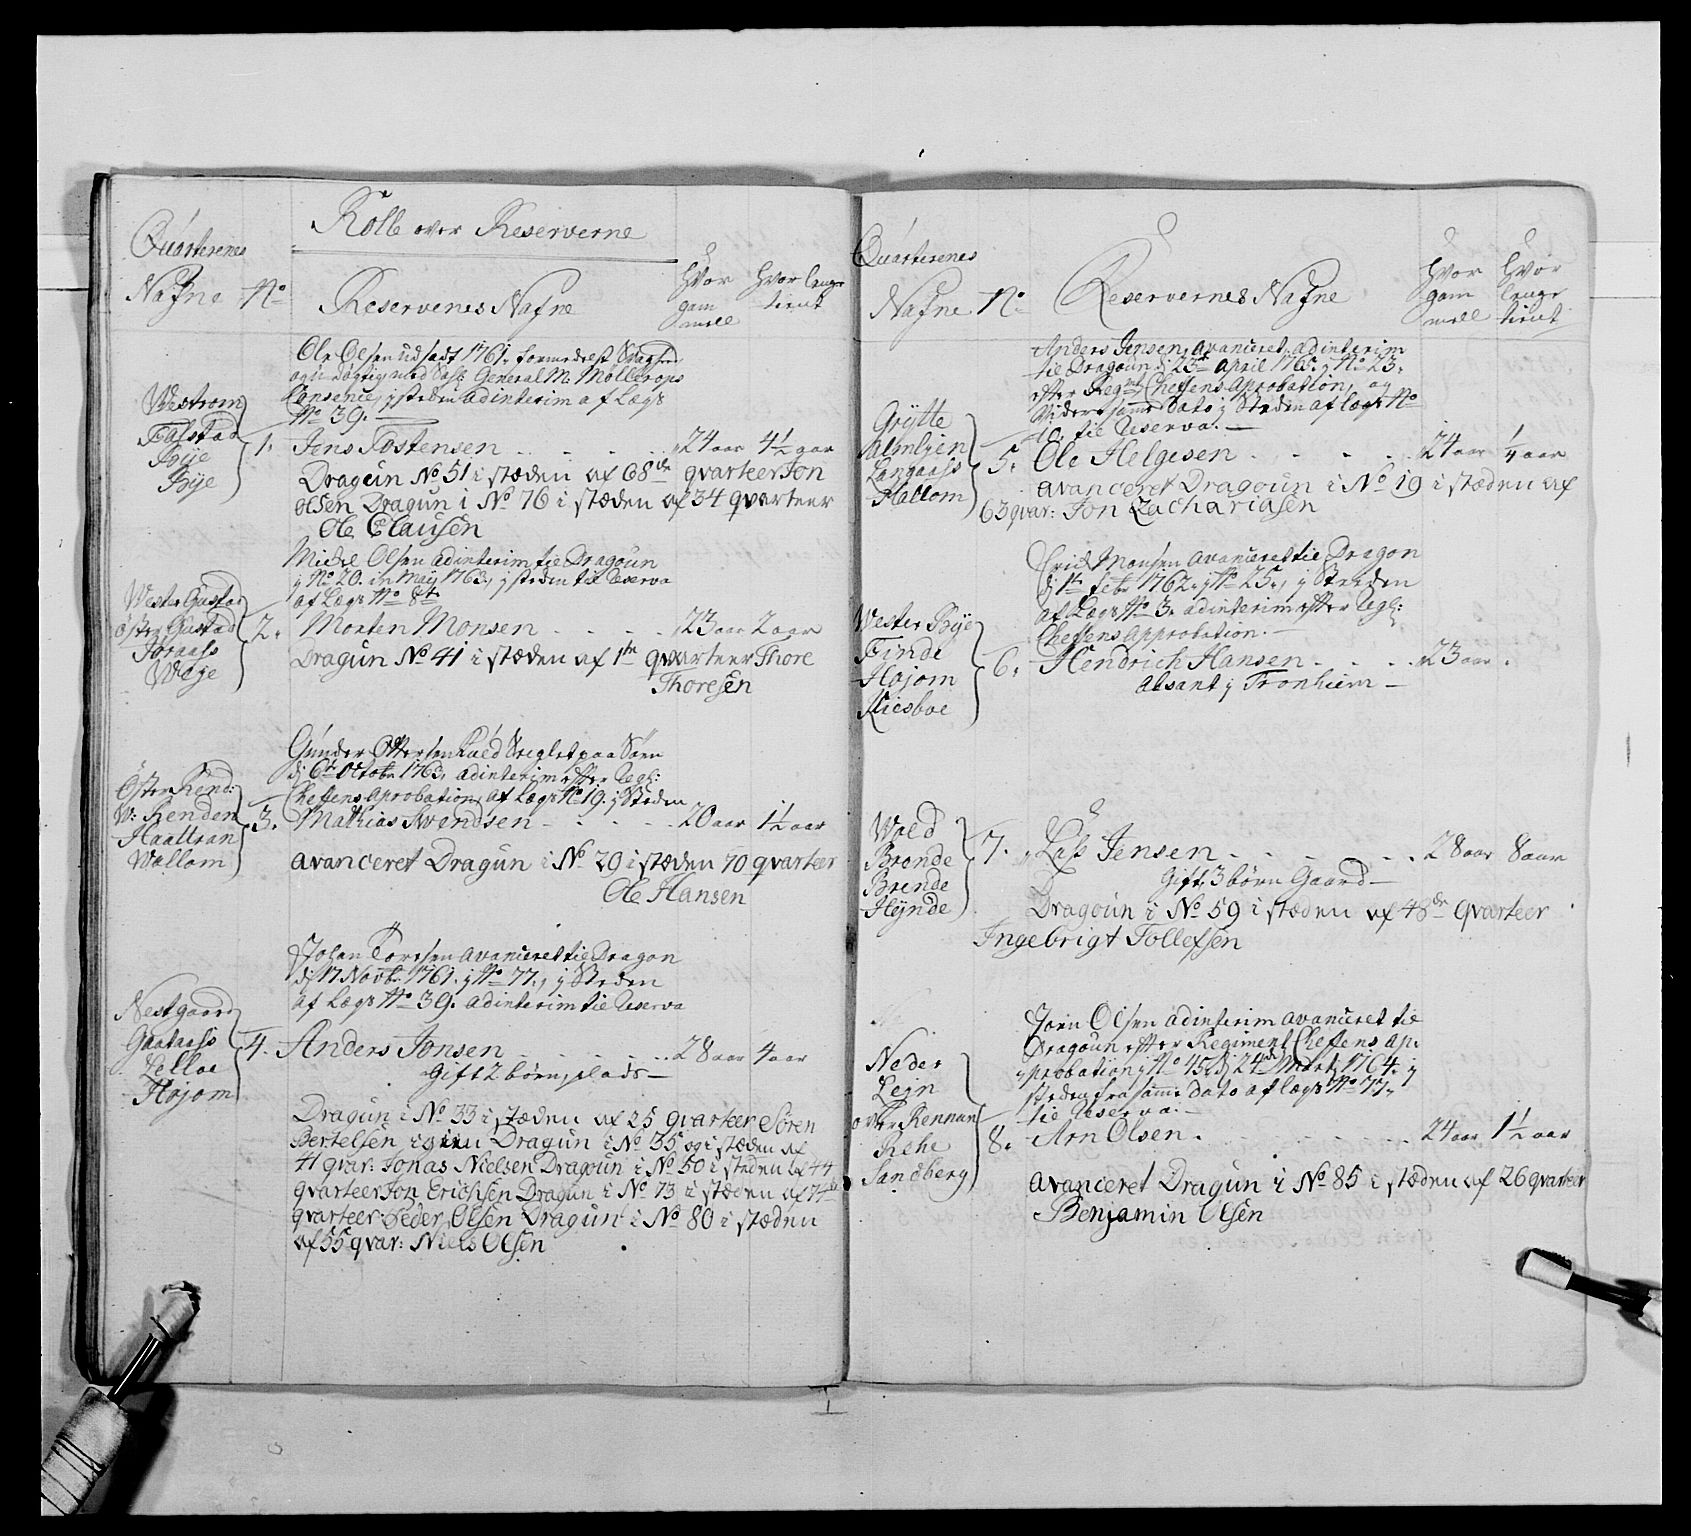 Rolle over Reserverne
Qvarterenes
Nafne No
Reservenes Nafne
hvor gam mell
hvor lenge tient
Ole Olsen udsadt 1761, formedelst Svaghed
og udøgtig med Sahl. General M: Møllerops
Consence, i steden adinterim af Lægs
No 39.
Westrom
Falstad
Bye
Bye
1. Jens Tostensen 24 aar 4½ aar
Dragun No 51 i stæden af 68de qvarteer Jon
Olsen Dragun i No 76 i stæden af 34 qvarteer
Ole Clausen
Michel Olsen adinterim til Dragoun
i No 20. in Maij 1763, i steden til Reserva
af Lægs No 8te
Wester Gustad
Øster Gustad
Joraass
Wæje
2. Morten Monsen 23 aar 2 aar
Dragun No 41 i stæden af 1te qvarteer Thore
Thoresen
Gunder Ottersen Kuld Seiglet paa Søen
d: 6te Octobr 1763, adinterim efter Regl:
Cheffens aprobation, af Lægs No 19. i Steden
Øster Rend:
W: Renden
Haaltran
Wallom
3. Mathias Swendsen 20 aar 1½ aar
avanceret Dragun i No 29 i stæden 70 qvarteer
Ole Hansen
Johan Toresen avanceret til Dragon
d: 17 Novbr 1761. i No 77., i Steden
af Lægs No 39. adinterim til Reserva
Nestgaard
Gaataass
Lelloe
Højom
4. Anders Jonsen 28 aar 4 aar
Gift 2 børn, plads
Dragun i No 33 i stæden af 25 qvarteer Søren
Bertelsen igien Dragun i No 35 og i stæden af
41 qvar: Jonas Nielsen Dragoun i No 50 i stæden af 44
qvarteer Jon Erichsen Dragun i No 73 i stæden af 74de
qvarteer Peder Olsen Dragun i No 80 i stæden
af 55 qvar: Niels Olsen
Qvarterenes
Nafne No
Reservernes Nafne
hvor gam mell
hvor lenge tient
Anders Jensen, avanceret, adinterim
til Dragoun d: 23de April 1765. i No 23.
efter Regmt Cheffens aprobation, og
Vider samme Dato i Steden af lægs No
10. til Reserva.
Grytte
Almlien
Langaass
Hallom
5. Ole Helgesen 24 aar ¼ aar
avanceret Dragoun i No 19 i stæden af
63 qvar: Jon Zachariasen
Erich Monsen avanceret til Dragon
d: 1te Febr 1762. i No 25., i Steden
af Lægs No 3. adinterim efter Regl:
Cheffens Approbation.
Wester Bye
Finde
Højom
Miesboe
6. Hendrich Hansen 23 aar
absant i Tronhiem
Wold
Brende
Brende
Hynde
7. Lass Jensen 28 aar 8 aar
Gift, 3 børn Gaard
Dragoun i No 59 i stæden af 48de qvarteer
Ingebrigt Tollefsen
Jørn Olsen adinterim avanceret til
Dragoun efter Regiment Cheffens ap-
probation i No 45, d: 24de Martj 1764. i
steden fra samme Dato af lægs No 77,
til Reserva.
Neder
Lejn
over Rennan
Rehe
Sandberg
8. Arn Olsen 24 aar 1½ aar
avanceret Dragun i No 85 i stæden af 26 qvarteer
Benjamin Olsen